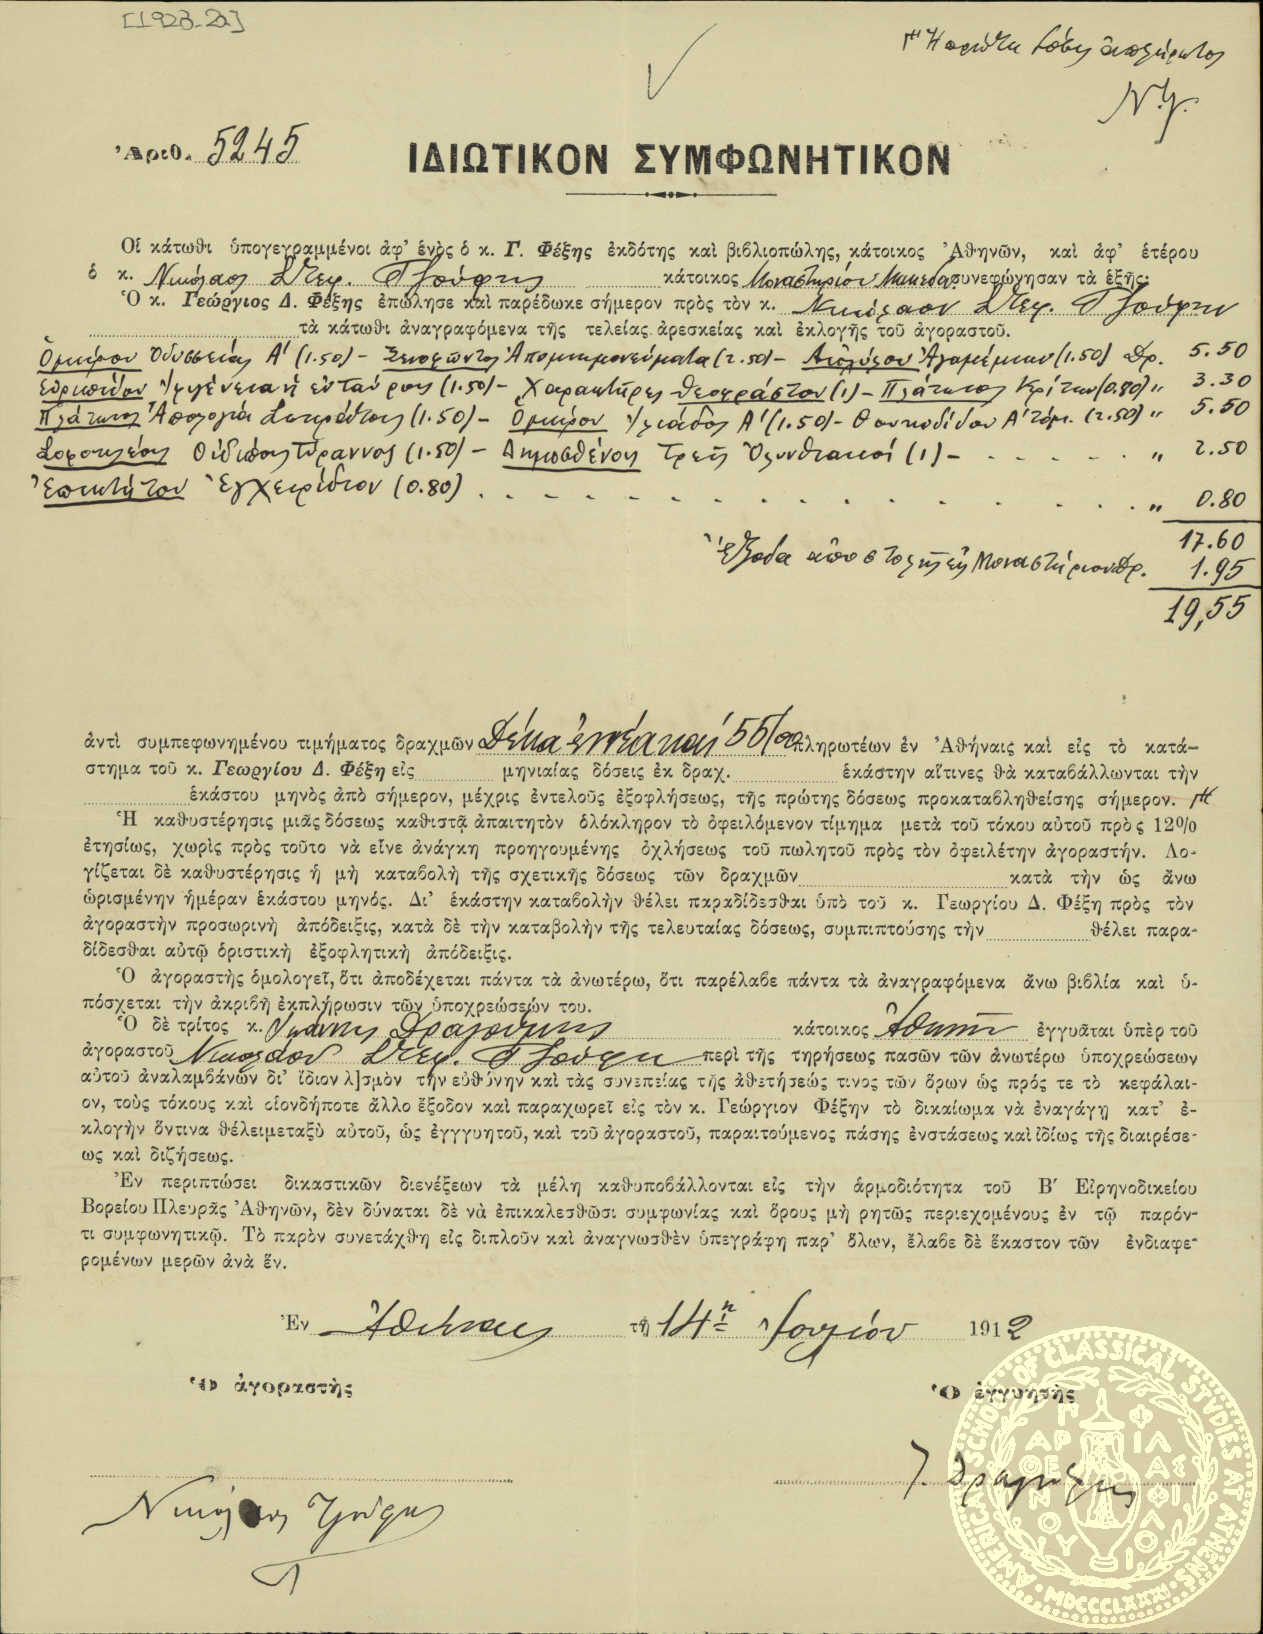 [1923-22]
Ἡ πρώτη δόσις ἀπλήρωτος
Ν.Γ.
Ἀριθ. 5245
ΙΔΙΩΤΙΚΟΝ ΣΥΜΦΩΝΗΤΙΚΟΝ
Οἱ κάτωθι ὑπογεγραμμένοι ἀφ' ἑνὸς ὁ κ. Γ. Φέξης ἐκδότης καὶ βιβλιοπώλης, κάτοικος Ἀθηνῶν, καὶ ἀφ' ἑτέρου
ὁ κ. Νικόλαος Στεφ. Τζούφης κάτοικος Μοναστηρίου Μακεδον. συνεφώνησαν τὰ ἑξῆς:
Ὁ κ. Γεώργιος Δ. Φέξης ἐπώλησε καὶ παρέδωκε σήμερον πρὸς τὸν κ. Νικόλαον Στεφ. Τζούφην
τὰ κάτωθι ἀναγραφόμενα τῆς τελείας ἀρεσκείας καὶ ἐκλογῆς τοῦ ἀγοραστοῦ.
Ὁμήρου Ὀδυσσείας Α' (1.50) – Ξενοφῶντος Ἀπομνημονεύματα (2.50) – Αἰσχύλου Ἀγαμέμνων (1.50) Δρ. 5.50
Εὐριπίδου Ἰφιγένεια ἡ ἐν Ταύροις (1.50) – Χαρακτῆρες Θεοφράστου (1) – Πλάτωνος Κρίτων (0.80) " 3.30
Πλάτωνος Ἀπολογία Σωκράτους (1.50) – Ὁμήρου Ἰλιάδος Α' (1.50) – Θουκυδίδου Α' τόμ. (2.50) " 5.50
Σοφοκλέους Οἰδίπους Τύραννος (1.50) – Δημοσθένους Τρεῖς Ὀλυνθιακοί (1) – - - - - - " 2.50
Ἐπικτήτου Ἐγχειρίδιον (0.80) - - - - - - - - - - - - - - " 0.80
17.60
Ἔξοδα ἀποστολῆς εἰς Μοναστήριον Δρ. 1.95
19,55
ἀντὶ συμπεφωνημένου τιμήματος δραχμῶν Δέκα ἐννέα καὶ 55/00 πληρωτέων ἐν Ἀθήναις καὶ εἰς τὸ κατά-
στημα τοῦ κ. Γεωργίου Δ. Φέξη εἰς μηνιαίας δόσεις ἐκ δραχ. ἑκάστην αἵτινες θὰ καταβάλλωνται τὴν
ἑκάστου μηνὸς ἀπὸ σήμερον, μέχρις ἐντελοῦς ἐξοφλήσεως, τῆς πρώτης δόσεως προκαταβληθείσης σήμερον.
Ἡ καθυστέρησις μιᾶς δόσεως καθιστᾷ ἀπαιτητὸν ὁλόκληρον τὸ ὀφειλόμενον τίμημα μετὰ τοῦ τόκου αὐτοῦ πρὸς 12%
ἐτησίως, χωρὶς πρὸς τοῦτο νὰ εἶνε ἀνάγκη προηγουμένης ὀχλήσεως τοῦ πωλητοῦ πρὸς τὸν ὀφειλέτην ἀγοραστήν. Λο-
γίζεται δὲ καθυστέρησις ἡ μὴ καταβολὴ τῆς σχετικῆς δόσεως τῶν δραχμῶν κατὰ τὴν ὡς ἄνω
ὡρισμένην ἡμέραν ἑκάστου μηνός. Δι' ἑκάστην καταβολὴν θέλει παραδίδεσθαι ὑπὸ τοῦ κ. Γεωργίου Δ. Φέξη πρὸς τὸν
ἀγοραστὴν προσωρινὴ ἀπόδειξις, κατὰ δὲ τὴν καταβολὴν τῆς τελευταίας δόσεως, συμπιπτούσης τὴν θέλει παρα-
δίδεσθαι αὐτῷ ὁριστικὴ ἐξοφλητικὴ ἀπόδειξις.
Ὁ ἀγοραστὴς ὁμολογεῖ, ὅτι ἀποδέχεται πάντα τὰ ἀνωτέρω, ὅτι παρέλαβε πάντα τὰ ἀναγραφόμενα ἄνω βιβλία καὶ ὑ-
πόσχεται τὴν ἀκριβῆ ἐκπλήρωσιν τῶν ὑποχρεώσεών του.
Ὁ δὲ τρίτος κ. Ἰωάννης Δραγούμης κάτοικος Ἀθηνῶν ἐγγυᾶται ὑπὲρ τοῦ
ἀγοραστοῦ Νικολάου Στεφ. Τζούφη περὶ τῆς τηρήσεως πασῶν τῶν ἀνωτέρω ὑποχρεώσεων
αὐτοῦ ἀναλαμβάνων δι' ἴδιον λ]σμὸν τὴν εὐθύνην καὶ τὰς συνεπείας τῆς ἀθετήσεώς τινος τῶν ὅρων ὡς πρός τε τὸ κεφάλαι-
ον, τοὺς τόκους καὶ οἱονδήποτε ἄλλο ἔξοδον καὶ παραχωρεῖ εἰς τὸν κ. Γεώργιον Φέξην τὸ δικαίωμα νὰ ἐναγάγῃ κατ' ἐ-
κλογὴν ὅντινα θέλει μεταξὺ αὐτοῦ, ὡς ἐγγγυητοῦ, καὶ τοῦ ἀγοραστοῦ, παραιτούμενος πάσης ἐνστάσεως καὶ ἰδίως τῆς διαιρέσε-
ως καὶ διζήσεως.
Ἐν περιπτώσει δικαστικῶν διενέξεων τὰ μέλη καθυποβάλλονται εἰς τὴν ἁρμοδιότητα τοῦ Β' Εἰρηνοδικείου
Βορείου Πλευρᾶς Ἀθηνῶν, δὲν δύναται δὲ νὰ ἐπικαλεσθῶσι συμφωνίας καὶ ὅρους μὴ ρητῶς περιεχομένους ἐν τῷ παρόν-
τι συμφωνητικῷ. Τὸ παρὸν συνετάχθη εἰς διπλοῦν καὶ ἀναγνωσθὲν ὑπεγράφη παρ' ὅλων, ἔλαβε δὲ ἕκαστον τῶν ἐνδιαφε-
ρομένων μερῶν ἀνὰ ἕν.
Ἐν Ἀθήναις τῇ 14ῃ Ἰουλίου 1912
Ὁ ἀγοραστὴς
Ὁ ἐγγυητὴς
Ι. Δραγούμης
Νικόλαος Τζούφης
AMERICAN SCHOOL OF CLASSICAL STUDIES AT ATHENS
ΠΑΡΘΕΝΟΥ ΦΙΛΑΣ ΦΙΛΟΙ
MDCCCLXXXI